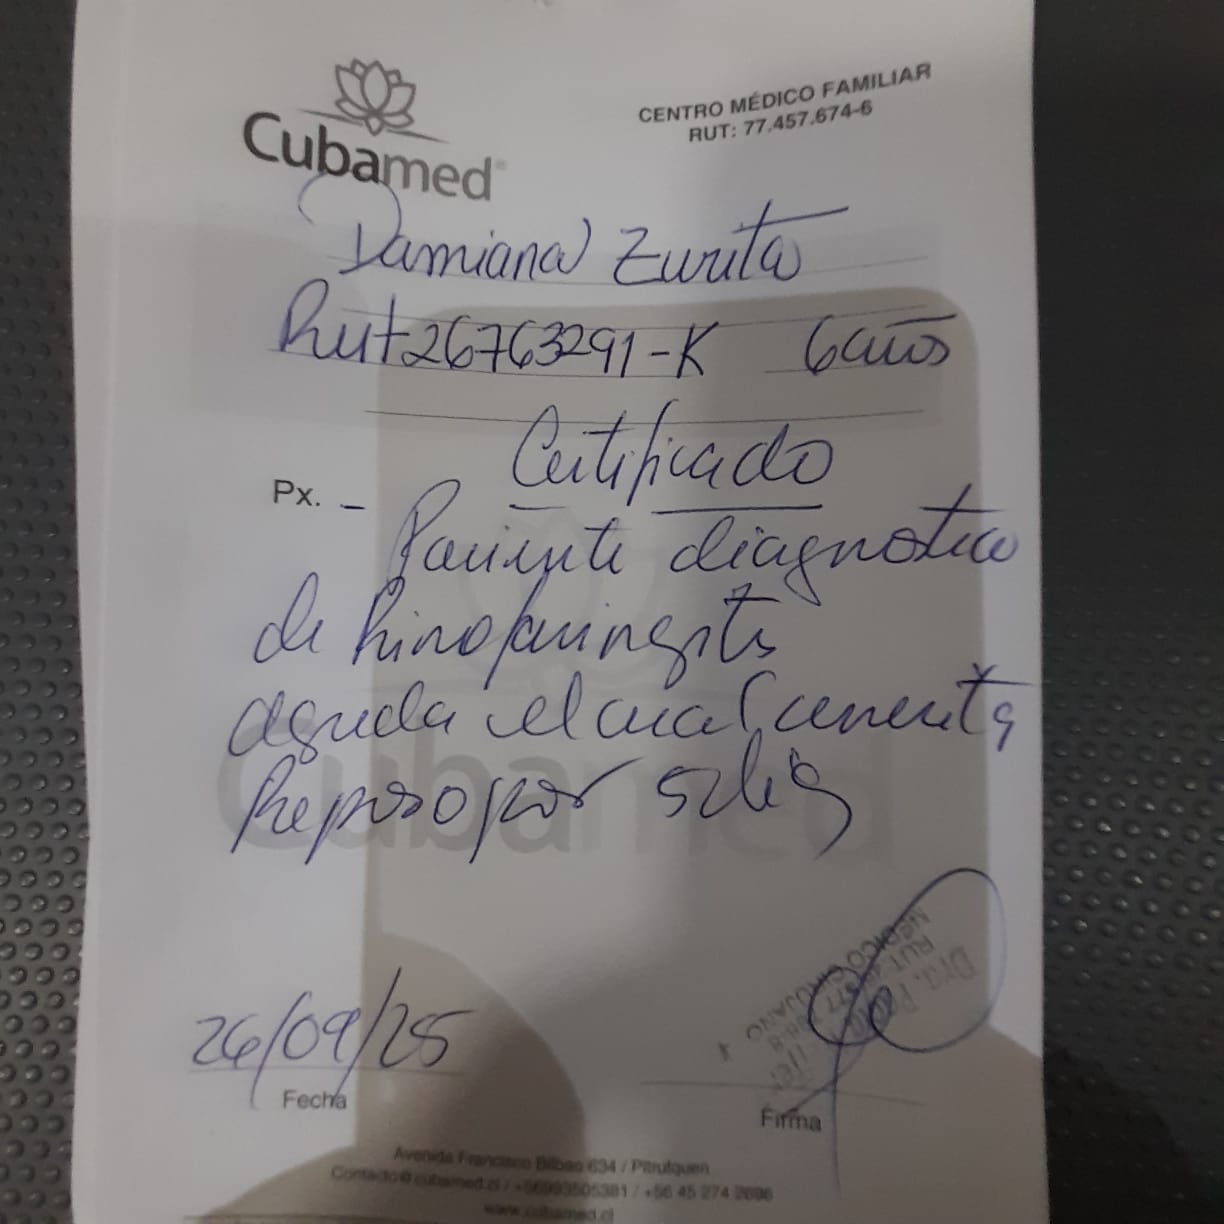 Cubamed
CENTRO MÉDICO FAMILIAR
RUT: 77.457.674-6
Damiana Zurita
Rut 26763291-K 6 años
Certificado
Px. - Paciente diagnostico
de Rinofaringitis
aguda el cual amerita
Reposo por 5 dias
26/09/25
Fecha
Dra.
RUT
MEDICO CIRUJANO
Firma
Avenida Francisco Bilbao 634 / Pitrufquen
Contacto@cubamed.cl / +56993505381 / +56 45 274 2696
www.cubamed.cl